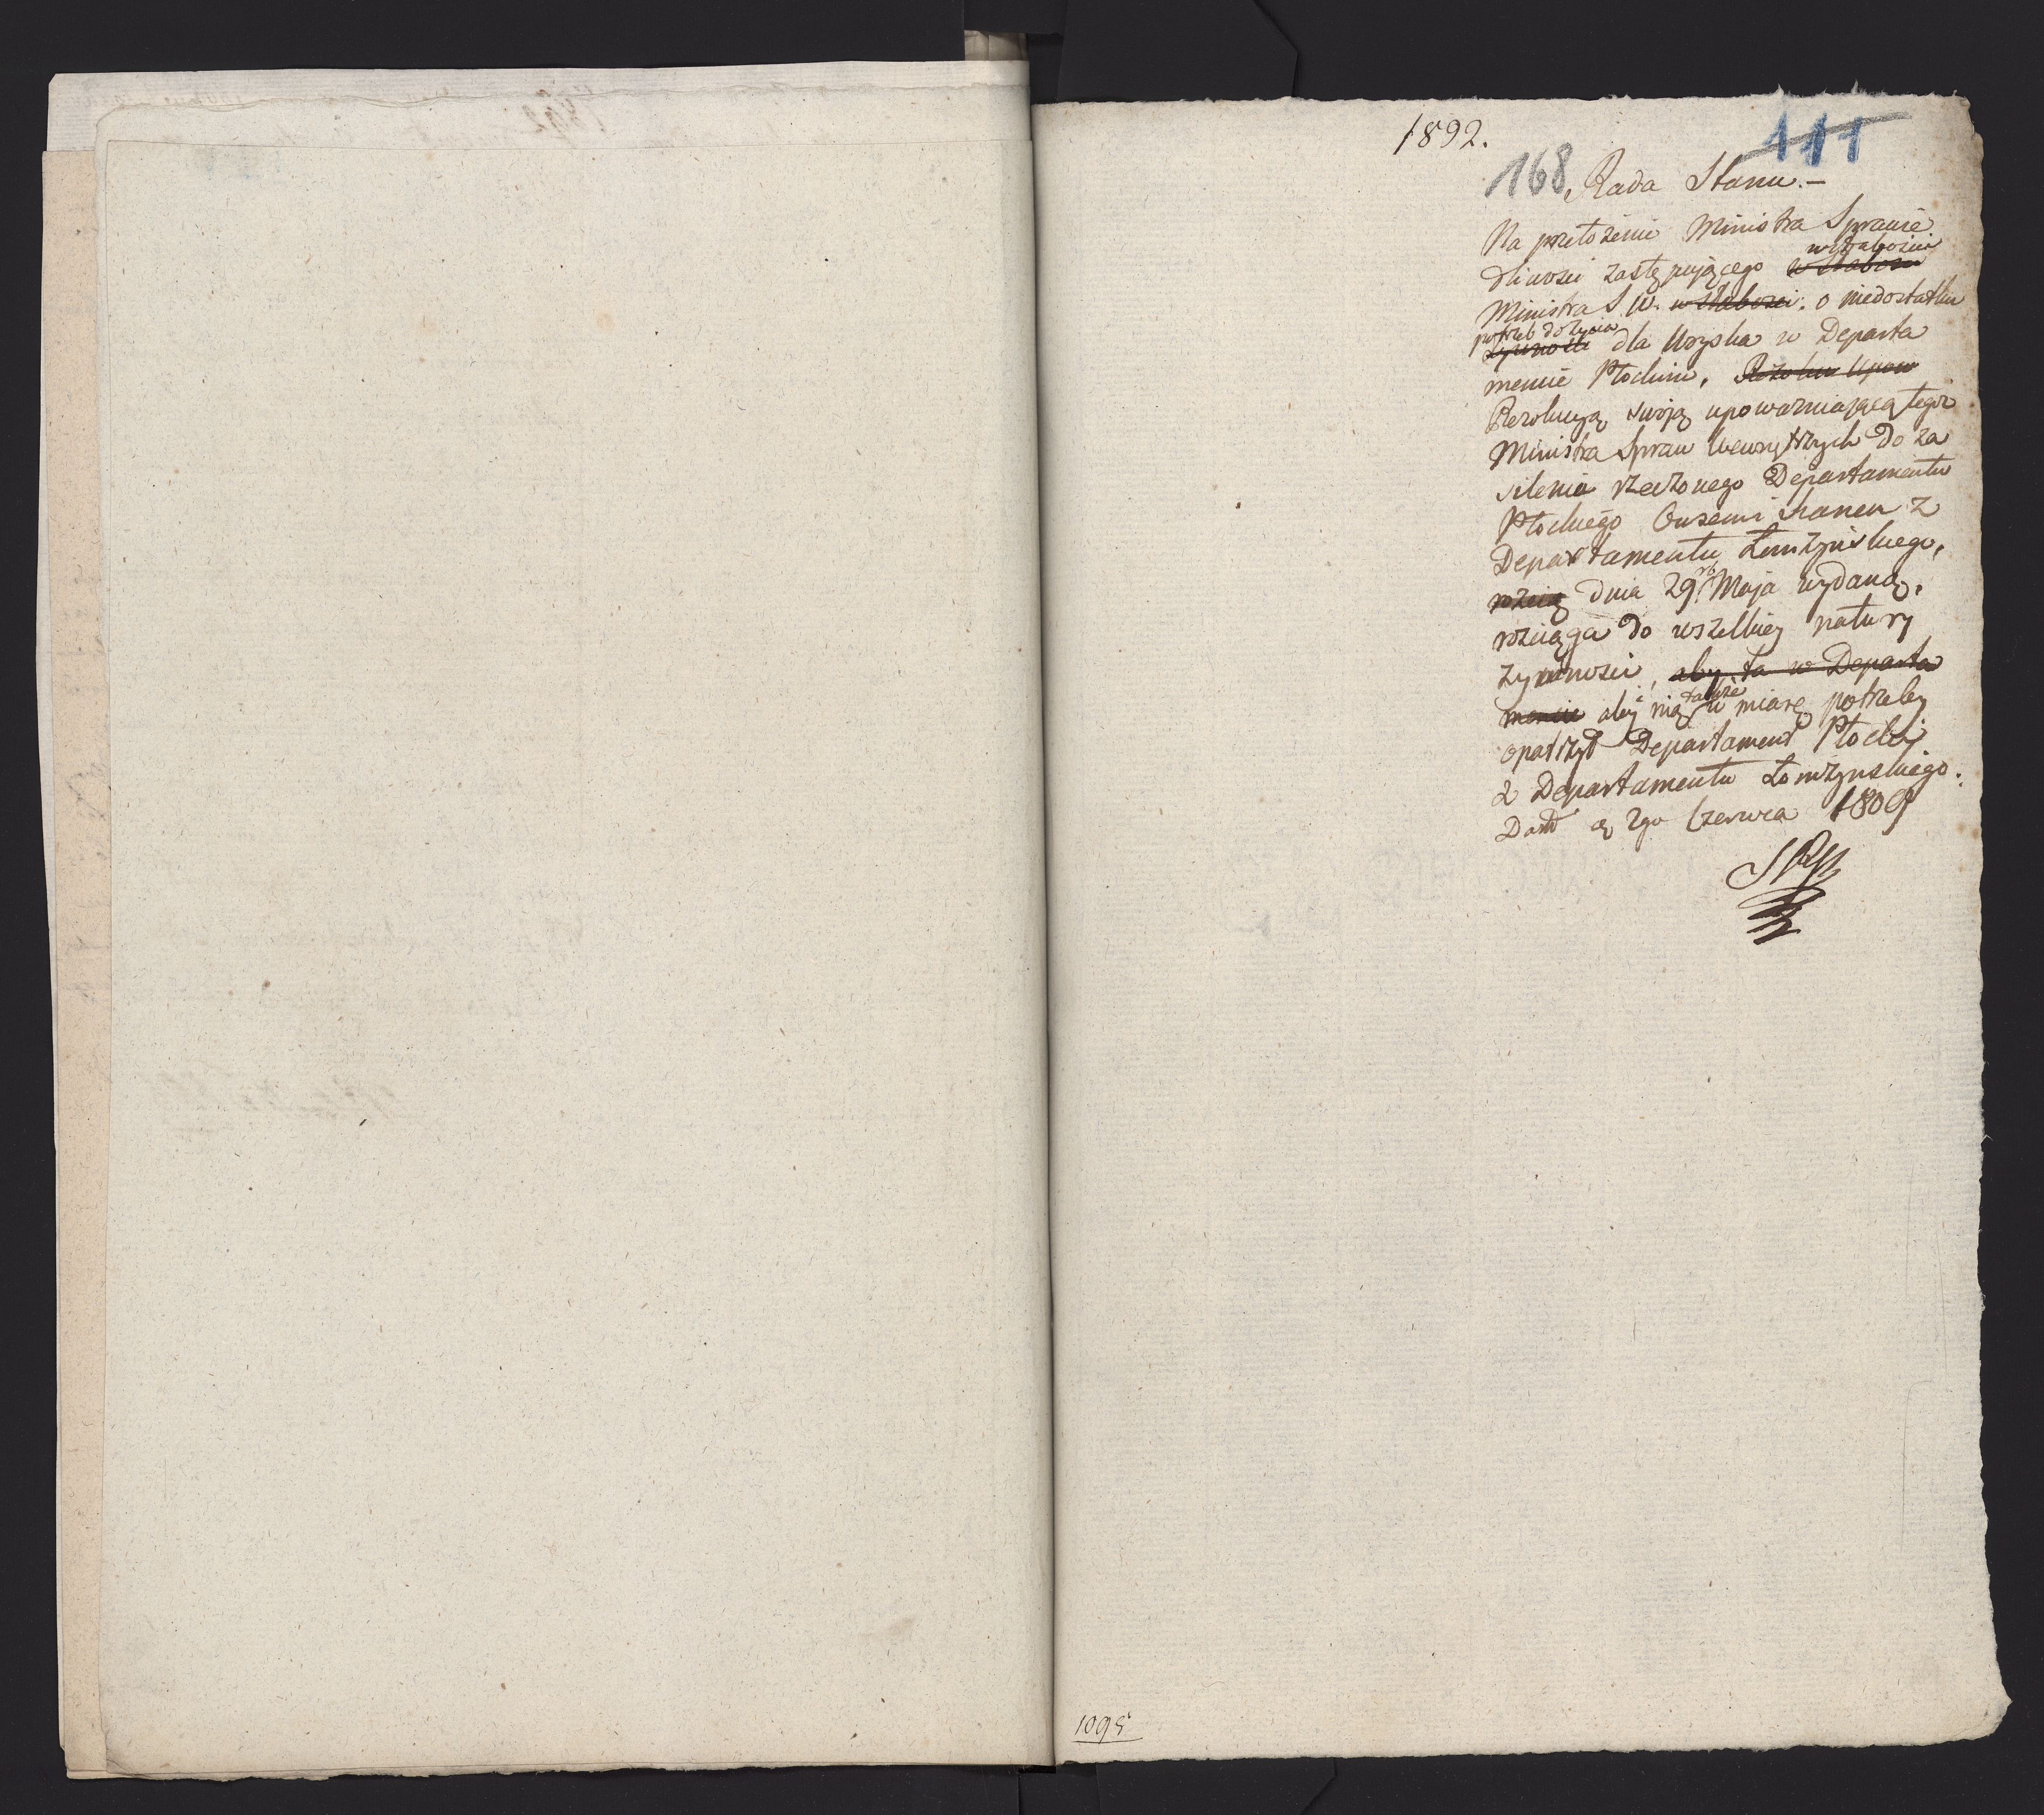 1892.
111
168
Rada Stanu.—
Na przełożenie Ministra Sprawie
dliwosci zastępuiącego w słabosci
w słabosci
Ministra S. W. w słabosci. o niedostatku
potrzeb do życia
żywnosci dla Woyska w Departa
mencie Płockim,
Rezolucyą swoją upoważniaiącą tegoż
Ministra Spraw Wewnętrznych do za
silenia rzeczonego Departamentu
Płockiego Owsem i sianem z
Departamentu Łomżyńskiego,
rozcią dnia 29. Maja wydaną,
rozciąga do wszelkiey natury
żywnosci, aby ta w Departa
mencie aby nią także w miarę potrzeby
opatrzył Departament Płocki
z Departamentu Łomżynskiego.
Dan 2go Czerwca 1809
1095